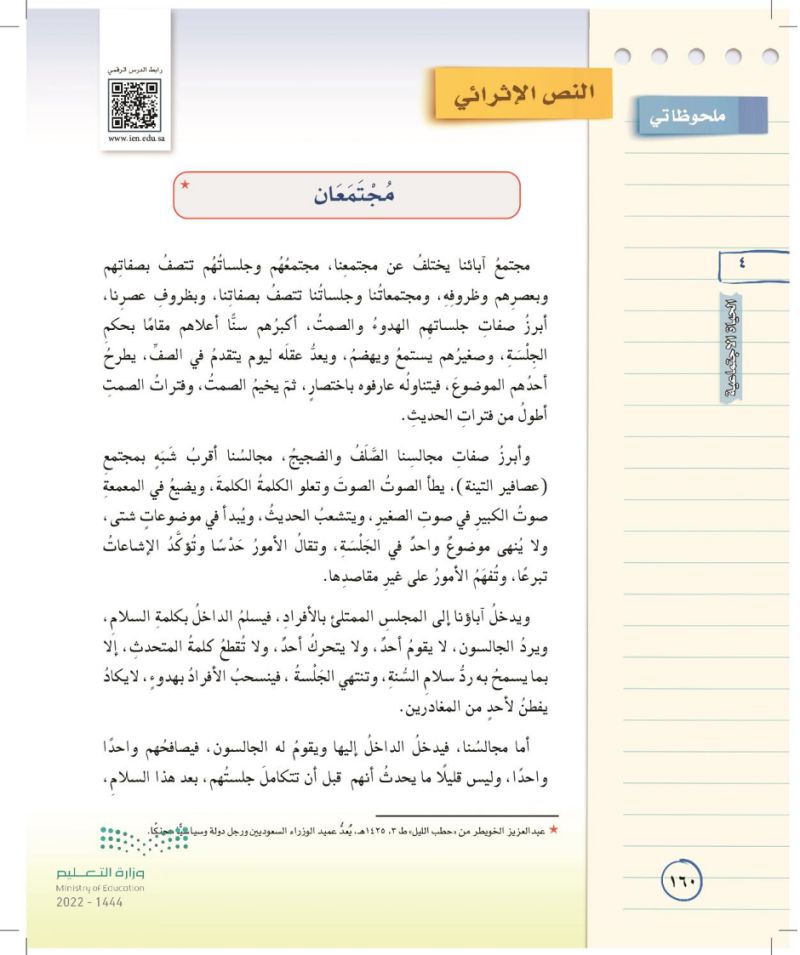 رابط الدرس الرقمي
www.ien.edu.sa
النص الإثرائي
ملحوظاتي
مُجْتَمَعَان ★
٤
الحياة الاجتماعية
مجتمعُ آبائنا يختلفُ عن مجتمعِنا، مجتمعُهُم وجلساتُهُم تتصفُ بصفاتِهم
وبعصرِهم وظروفِهِ، ومجتمعاتُنا وجلساتُنا تتصفُ بصفاتِنا، وبظروفِ عصرِنا،
أبرزُ صفاتِ جلساتِهم الهدوءُ والصمتُ، أكبرُهم سنًّا أعلاهم مقامًا بحكم
الجِلْسَةِ، وصغيرُهم يستمعُ ويهضمُ، ويعدُّ عقلَه ليوم يتقدمُ في الصفِّ، يطرحُ
أحدُهم الموضوعَ، فيتناولُه عارفوه باختصارٍ، ثمّ يخيمُ الصمتُ، وفتراتُ الصمتِ
أطولُ من فتراتِ الحديثِ.
وأبرزُ صفاتِ مجالسِنا الصَّلَفُ والضجيجُ، مجالسُنا أقربُ شَبَهٍ بمجتمعِ
(عصافير التينة)، يطأ الصوتُ الصوتَ وتعلو الكلمةُ الكلمةَ، ويضيعُ في المعمعةِ
صوتُ الكبيرِ في صوتِ الصغيرِ، ويتشعبُ الحديثُ، ويُبدأ في موضوعاتٍ شتى،
ولا يُنهى موضوعٌ واحدٌ في الجَلْسَةِ، وتقالُ الأمورُ حَدْسًا وتُؤكَّدُ الإشاعاتُ
تبرعًا، وتُفهَمُ الأمورُ على غيرِ مقاصدِها.
ويدخلُ آباؤنا إلى المجلسِ الممتلئِ بالأفرادِ، فيسلمُ الداخلُ بكلمةِ السلامِ،
ويردُ الجالسون، لا يقومُ أحدٌ، ولا يتحركُ أحدٌ، ولا تُقطعُ كلمةُ المتحدثِ، إلا
بما يسمحُ به ردُّ سلامِ السُنةِ، وتنتهي الجَلْسةُ، فينسحبُ الأفرادُ بهدوءٍ، لايكادُ
يفطنُ لأحدٍ من المغادرين.
أما مجالسُنا، فيدخلُ الداخلُ إليها ويقومُ له الجالسون، فيصافحُهم واحدًا
واحدًا، وليس قليلًا ما يحدثُ أنهم قبل أن تتكاملَ جلستُهم، بعد هذا السلامِ،
★ عبدالعزيز الخويطر من «حطب الليل» ط ٣، ١٤٢٥هـ، يُعدُّ عميد الوزراء السعوديين ورجل دولة وسياسيًّا محنكًا.
وزارة التعـــليم
Ministry of Education
2022 - 1444
١٦٠